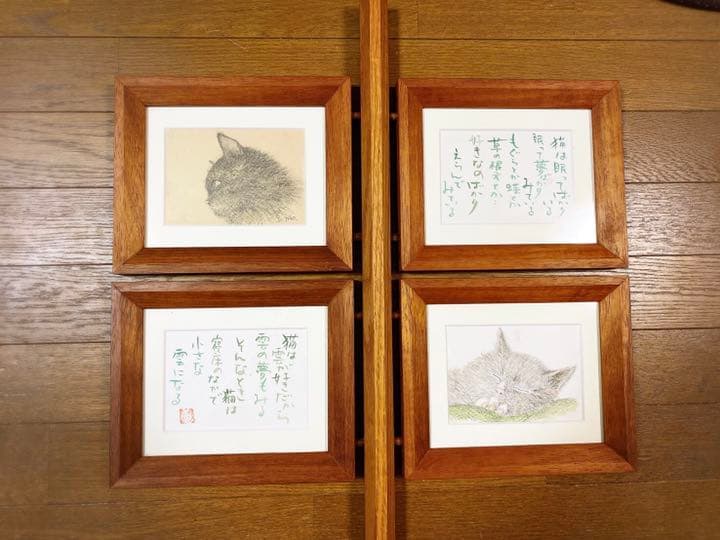 猫は眠ってばかりいる
眠って夢ばかり
みている
もぐらとか蝶とか
草の根方とか…
好きなのばかり
えらんで
みている
猫は
雲が好きだから
雲の夢もみる
そんなとき
猫は
寝床のなかで
小さな
雲になる